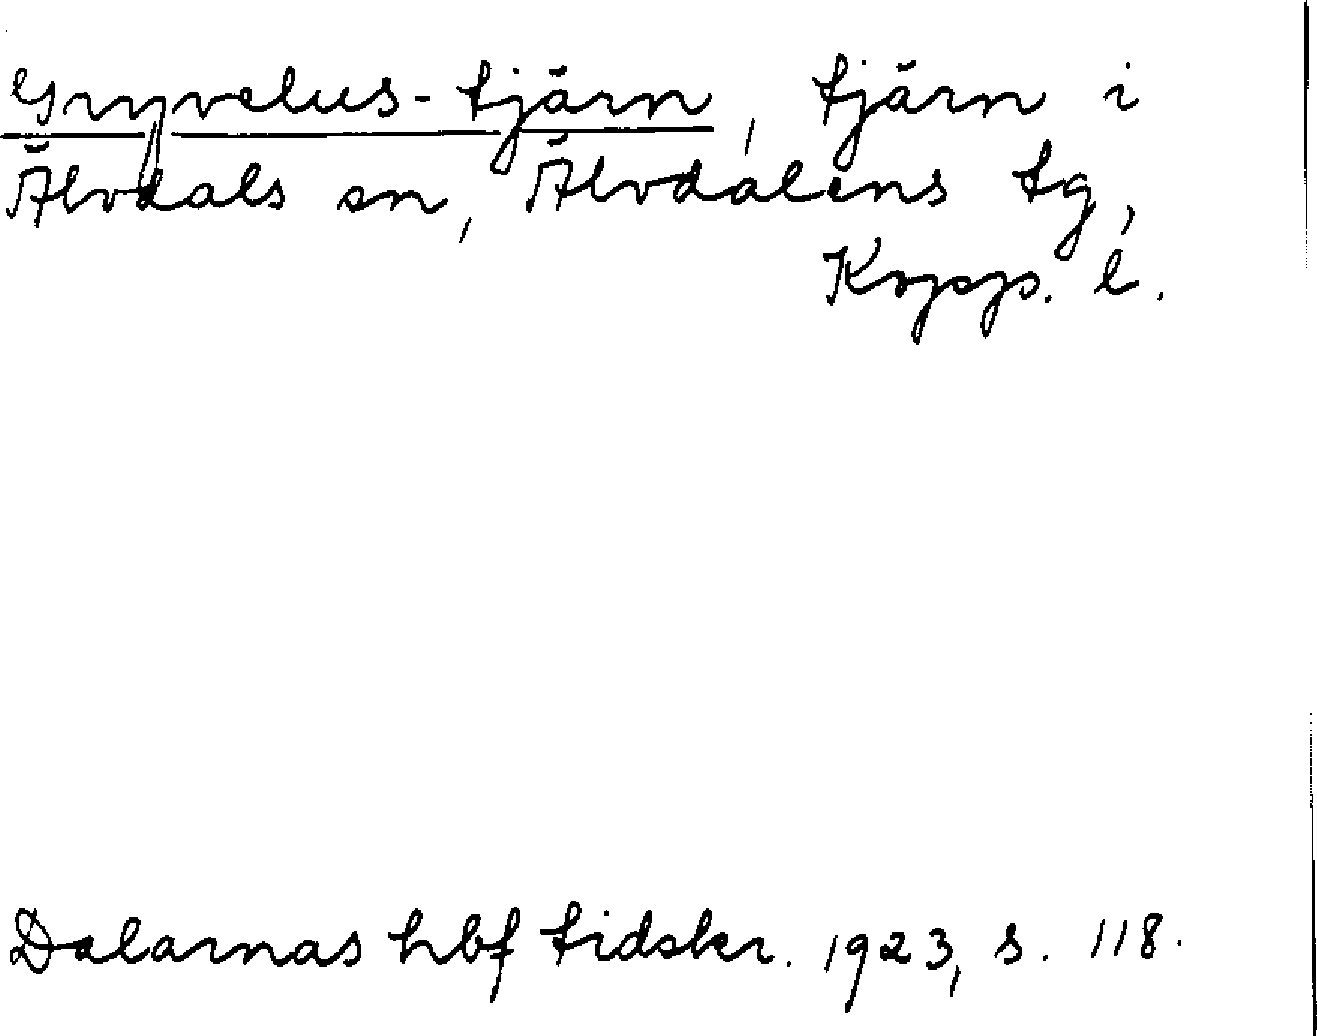 Gryvelus-tjärn, tjärn i
Älvdals sn, Älvdalens tg,
Kopp. l.
Dalarnas hbf tidskr. 1923, s. 118.